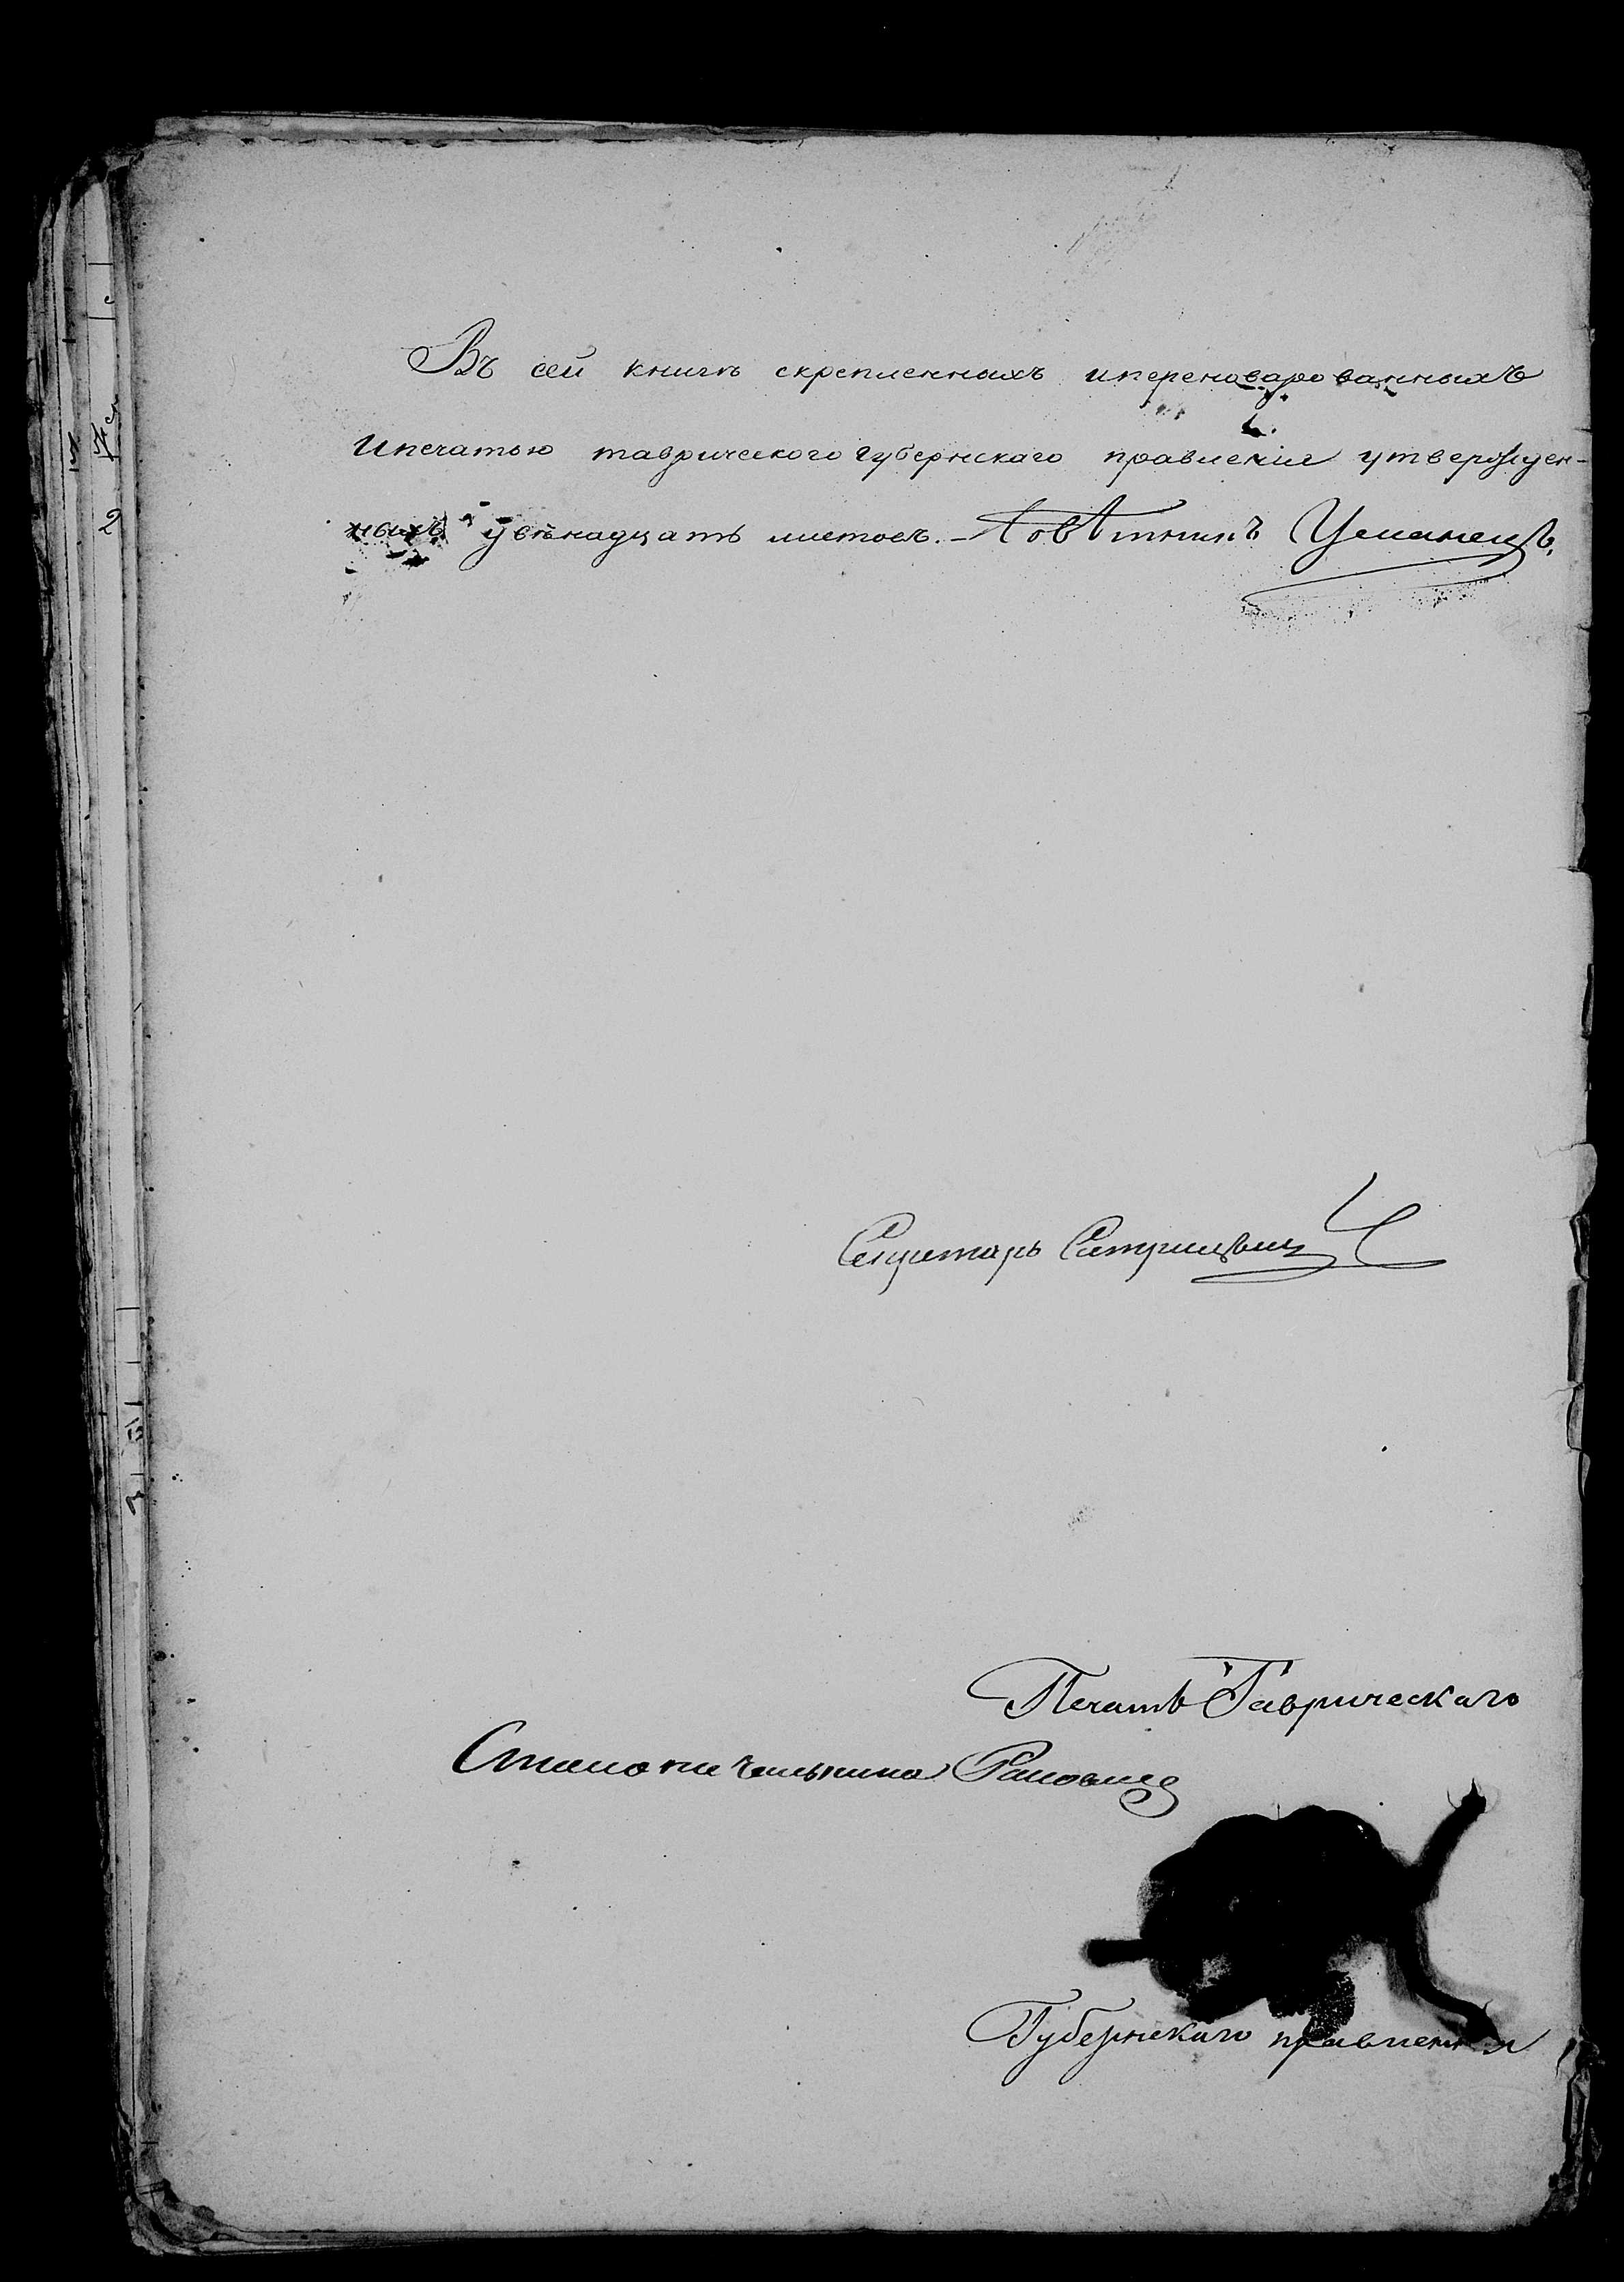 Въ сей книгѣ скрепленныхъ ипереноварованныхъ
Ипечатью таврического губернскаго правленія утвержден-
ныхъ двѣнадцать листовъ. – Совѣтникъ Уманецъ.
Секретарь
Печать Таврическаго
Столоначальника
Губернскаго правленія
2